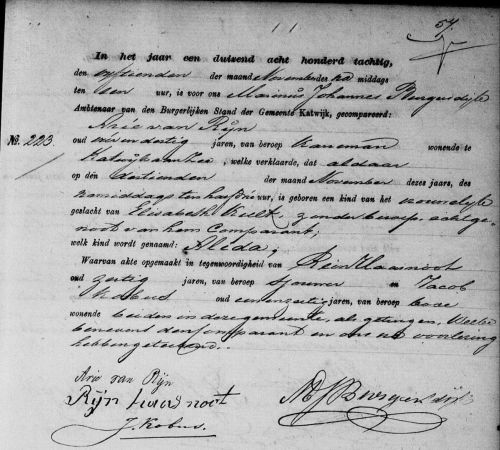 57.
In het jaar een duizend acht honderd tachtig,
den vijftienden der maand November des na middags
ten een uur, is voor ons Marinus Johannes Burgerdijk
Ambtenaar van den Burgerlijken Stand der Gemeente Katwijk, gecompareerd:
Arie van Rijn
No. 223. oud jaren, van beroep wonende te
Katwijk aan Zee, welke verklaarde, dat aldaar
op den dertienden der maand November dezes jaars, des
namiddags ten half uur, is geboren een kind van het vrouwelijk
geslacht van Elisabeth Kuilt, zonder beroep, echtge-
noot van hem Comparant;
welk kind wordt genaamd: Aleda;
Waarvan akte opgemaakt in tegenwoordigheid van Rein Haasnoot
oud zestig jaren, van beroep en Jacob
Kobus oud een en zestig jaren, van beroep bode
wonende beiden in deze gemeente, als getuigen, Welke
benevens den Comparant en ons na voorlezing
hebben geteekend.
Arie van Rijn
Rijn haasnoot MJBurgerdijk
J. Kobus.